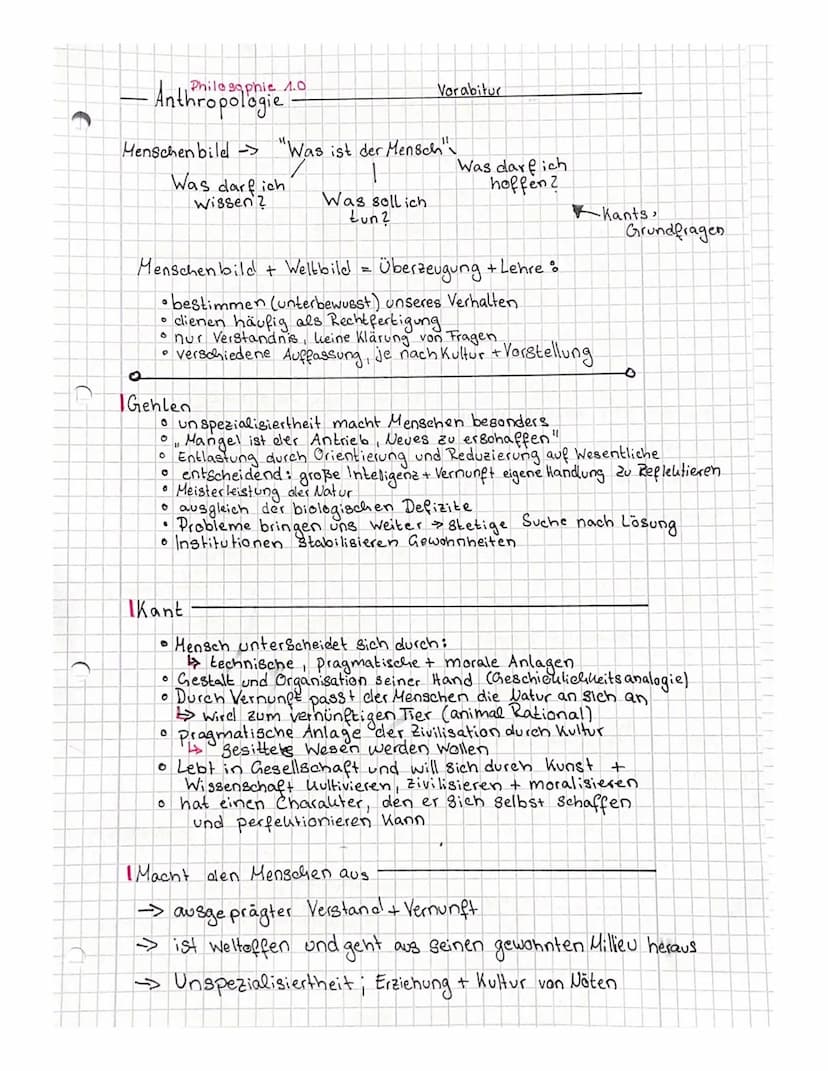 Philosophie 1.0
Anthropologie
Vorabitur
Menschenbild -> "Was ist der Mensch"
Was darf ich wissen?
Was soll ich tun?
Was darf ich hoffen?
Kants,
Grundfragen
Menschenbild + Weltbild = Überzeugung + Lehre:
• bestimmen (unterbewusst) unseres Verhalten
• dienen häufig als Rechtfertigung
• nur Verständnis, keine Klärung von Fragen
• verschiedene Auffassung, je nach Kultur + Vorstellung
Gehlen
• unspezialisiertheit macht Menschen besonders
• „Mangel ist der Antrieb, Neues zu erschaffen"
• Entlastung durch Orientierung und Reduzierung auf Wesentliche
• entscheidend: große Inteligenz + Vernunft eigene Handlung zu Reflektieren
• Meisterleistung der Natur
• ausgleich der biologischen Defizite
• Probleme bringen uns weiter → stetige Suche nach Lösung
• Institutionen stabilisieren Gewohnheiten
Kant
• Mensch unterscheidet sich durch:
↳ technische, pragmatische + morale Anlagen
• Gestalt und Organisation seiner Hand (Geschicklichkeitsanalogie)
• Durch Vernunft passt der Menschen die Natur an sich an
↳ wird zum vernünftigen Tier (animal Rational)
• pragmatische Anlage der Zivilisation durch Kultur
↳ gesittetes Wesen werden wollen
• Lebt in Gesellschaft und will sich durch Kunst +
Wissenschaft kultivieren, zivilisieren + moralisieren
• hat einen Charakter, den er sich selbst schaffen
und perfektionieren kann
Macht den Menschen aus
→ ausgeprägter Verstand + Vernunft
→ ist weltoffen und geht aus seinen gewohnten Milieu heraus
→ Unspezialisiertheit; Erziehung + Kultur von Nöten